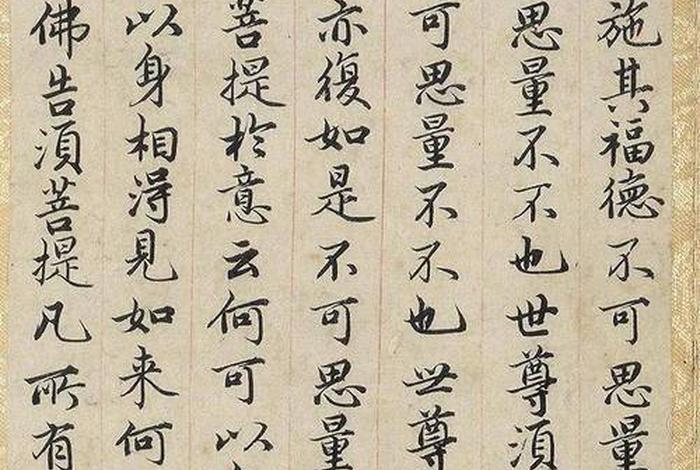 施其福德不可思量
思量不不也世尊須
可思量不不也世尊
亦復如是不可思量
菩提於意云何可以
以身相得見如来何
佛告須菩提凡所有